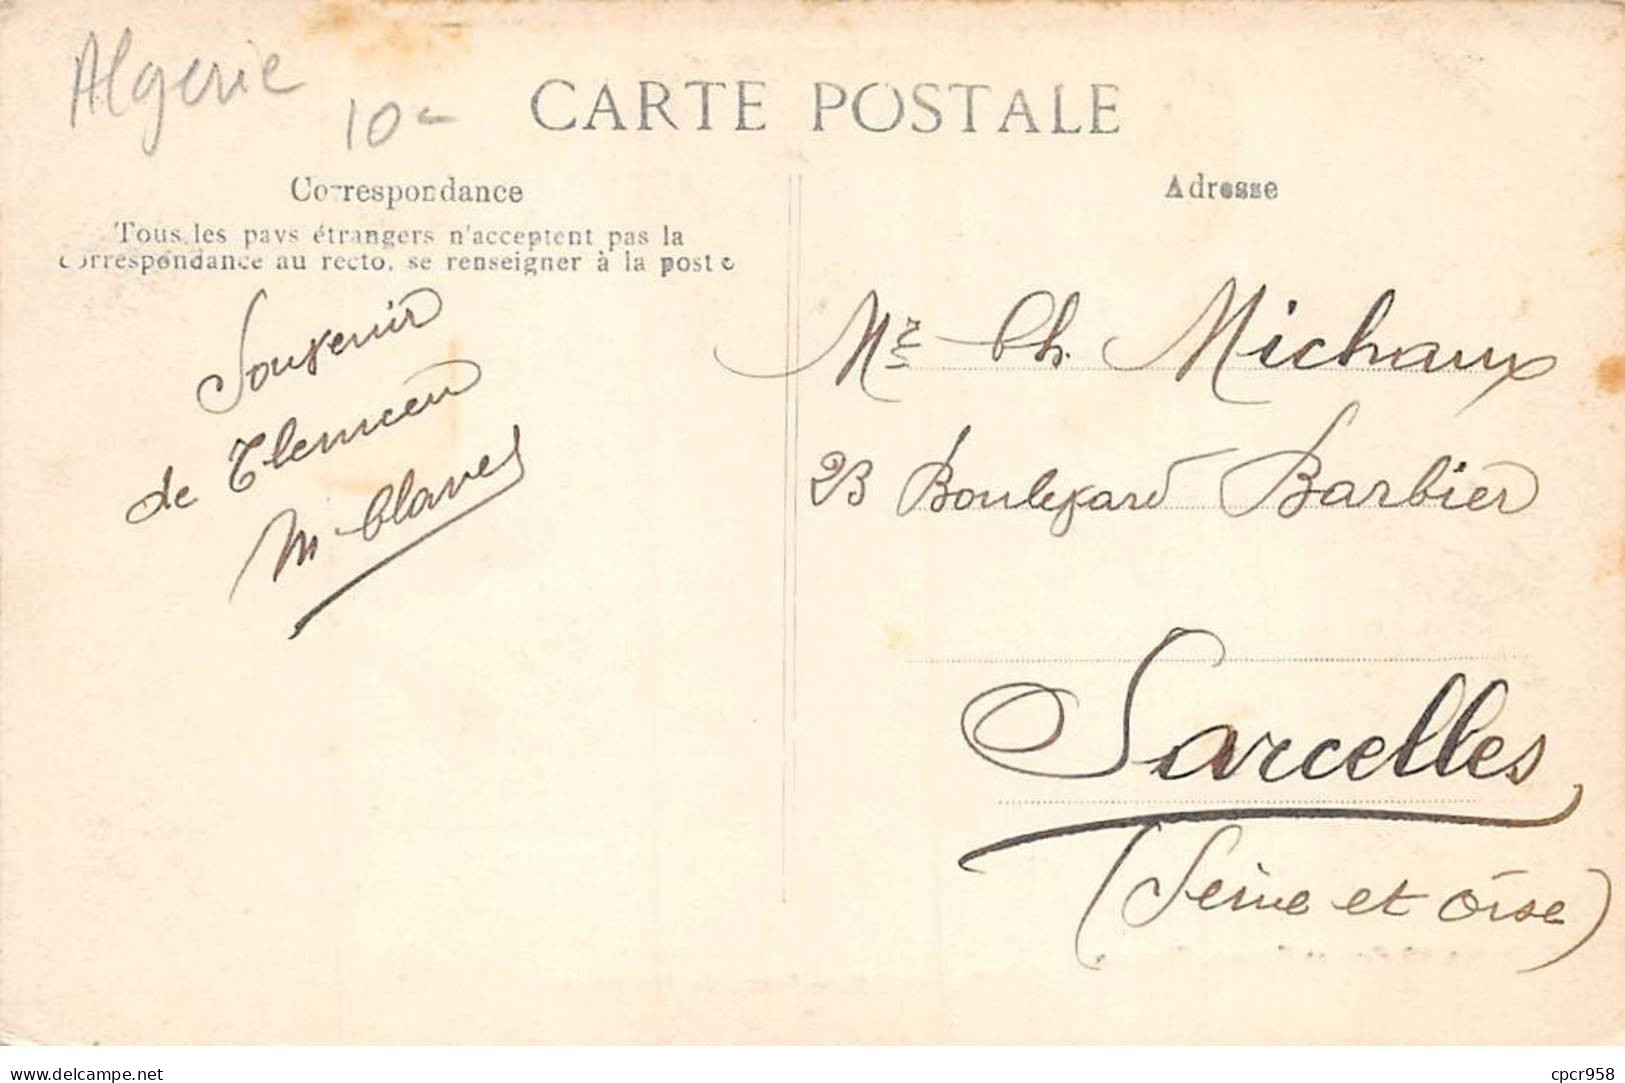 Algerie
10-
CARTE POSTALE
Correspondance
Tous les pays étrangers n'acceptent pas la
correspondance au recto, se renseigner à la poste
Souvenir
de Tlemcen
M Claves
Adresse
Mr Ch. Michaux
23 Boulevard Barbier
Sarcelles
(Seine et Oise)
www.delcampe.net
cpcr958